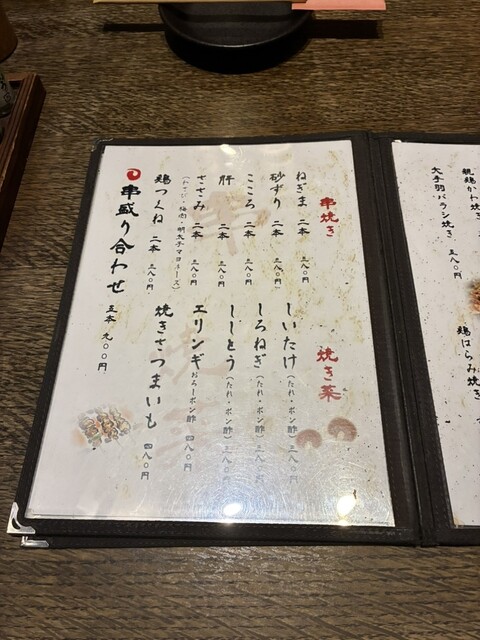 親鶏かわ焼
大手羽バラシ焼き 三八〇円
鶏はらみ焼き
串焼き
ねぎま 二本 三八〇円
砂ずり 二本 三八〇円
こころ 二本 三八〇円
肝 二本 三八〇円
ささみ 二本 三八〇円
(わさび・梅肉・明太子マヨネーズ)
鶏つくね 二本 三八〇円
串盛り合わせ 五本 九〇〇円
焼き菜
しいたけ (たれ・ポン酢) 三八〇円
しろねぎ (たれ・ポン酢) 三八〇円
ししとう (たれ・ポン酢) 三八〇円
エリンギ おろしポン酢 四八〇円
焼きさつまいも 四八〇円